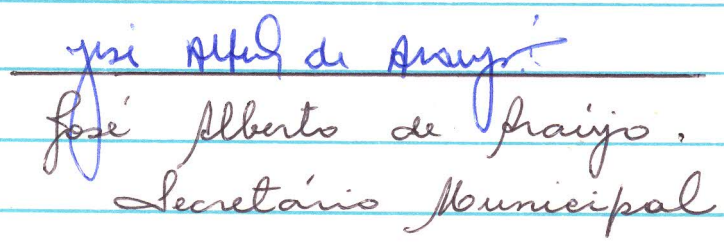 José Alberto de Araújo
José Alberto de Araújo.
Secretário Municipal